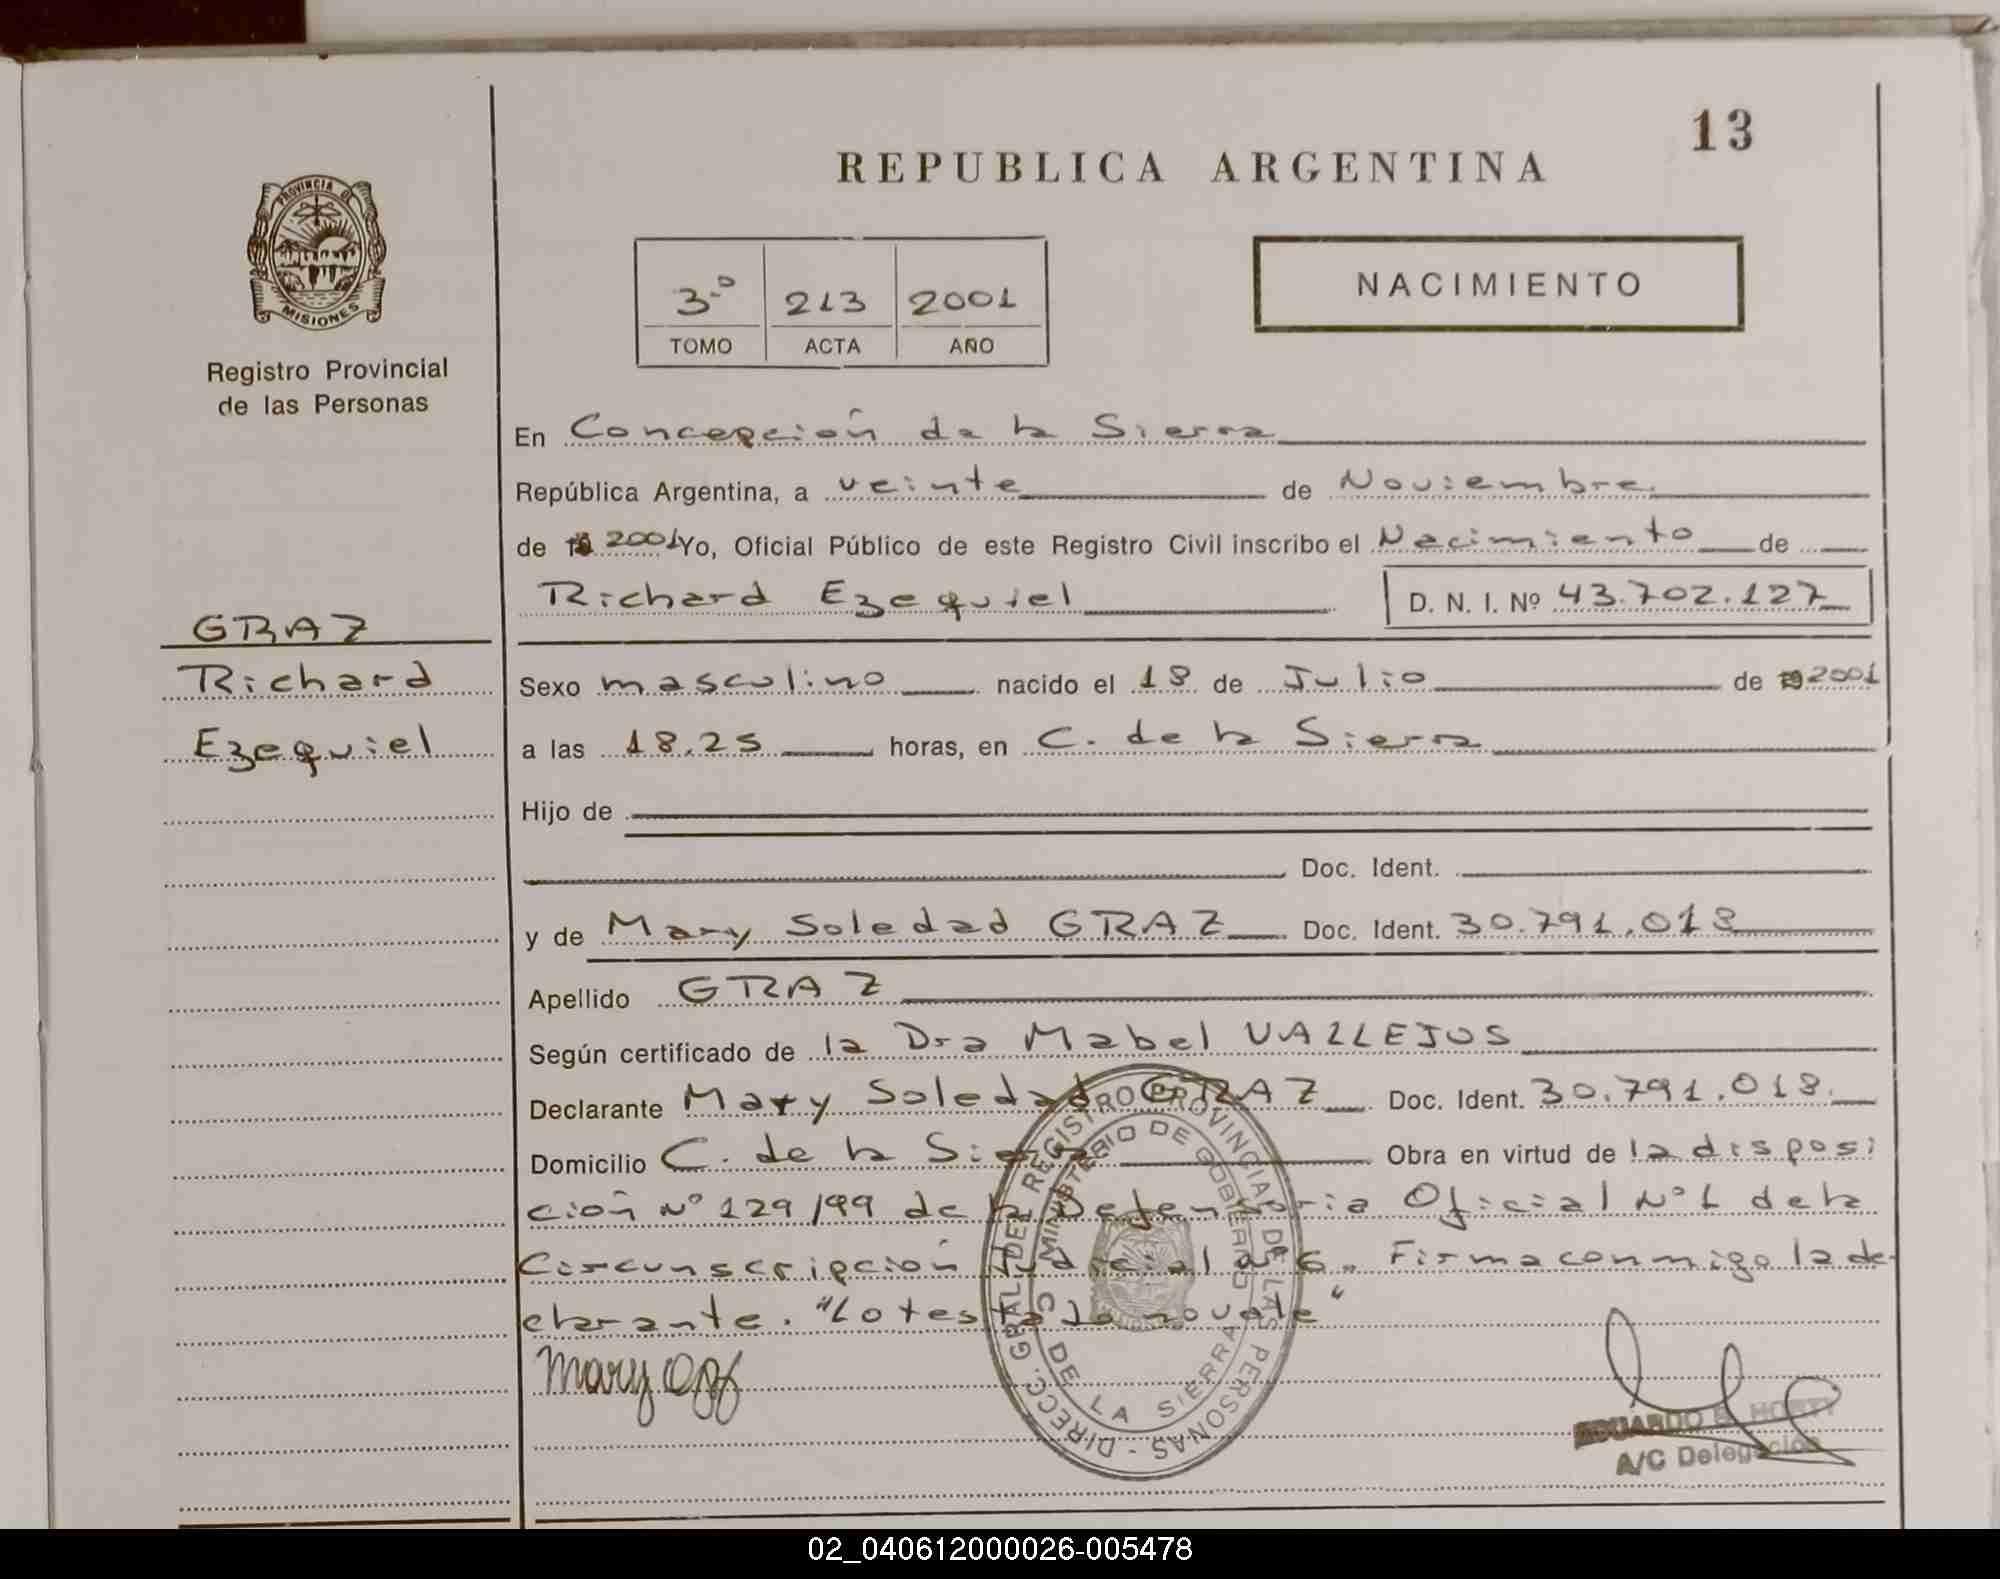 13
REPUBLICA ARGENTINA
PROVINCIA DE
MISIONES
Registro Provincial
de las Personas
3.º 213 2001
TOMO ACTA AÑO
NACIMIENTO
En Concepción de la Sierra
República Argentina, a veinte de Noviembre
de 19 2001 Yo, Oficial Público de este Registro Civil inscribo el Nacimiento de
Richard Ezequiel D. N. I. Nº 43.702.127
GRAZ
Richard
Ezequiel
Sexo masculino nacido el 18 de Julio de 19 2001
a las 18.25 horas, en C. de la Sierra
Hijo de
Doc. Ident.
y de Mary Soledad GRAZ Doc. Ident. 30.791.018
Apellido GRAZ
Según certificado de la Dra Mabel VALLEJOS
Declarante Mary Soledad GRAZ Doc. Ident. 30.791.018.
Domicilio C. de la Sierra Obra en virtud de la disposi
ción Nº 129/99 de la Defensoria Oficial Nº 1 de la
Circunscripción Judicial Firma conmigo la de
clarante. "Lo testado no vale"
Mary
DIRECC. GRAL. DEL REGISTRO PROVINCIAL DE LAS PERSONAS -
MINISTERIO DE GOBIERNO
C. DE LA SIERRA
EDUARDO
A/C Delegación
02_040612000026-005478